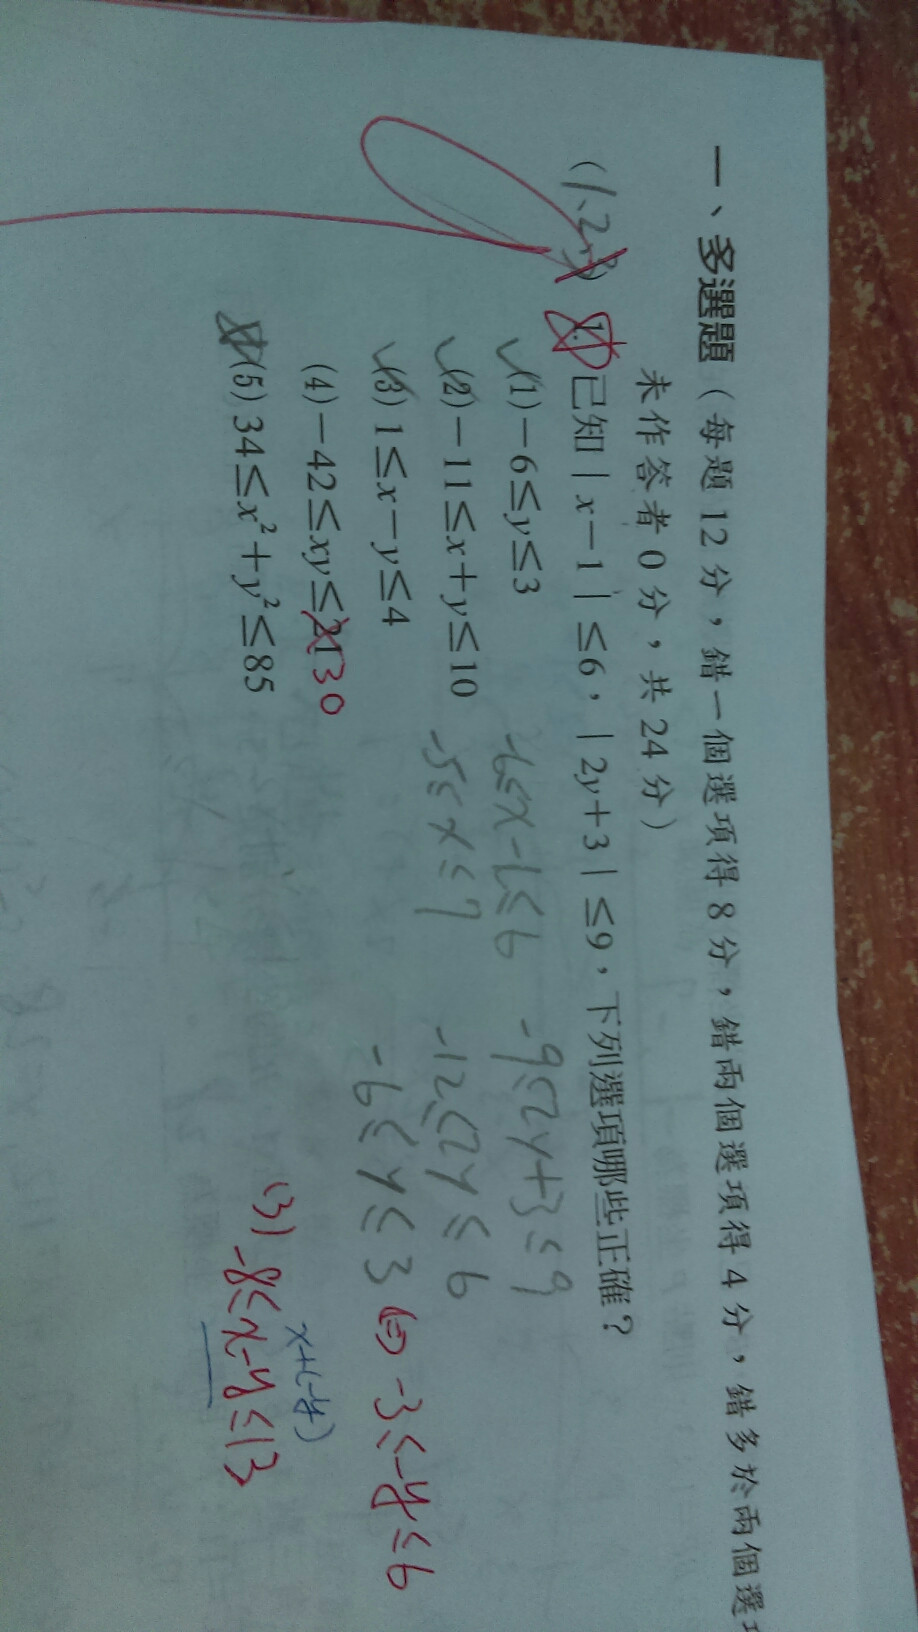 一、多選題（每題12分，錯一個選項得8分，錯兩個選項得4分，錯多於兩個選項
未作答者0分，共24分）
(1、2、3) 1. 已知|x−1|≤6，|2y+3|≤9，下列選項哪些正確？
(1)−6≤y≤3
(2)−11≤x+y≤10
(3)1≤x−y≤4
(4)−42≤xy≤21 30
(5)34≤x²+y²≤85
-6≤x-1≤6
-5≤x≤7
-9≤2y+3≤9
-12≤2y≤6
-6≤y≤3 ⇔ -3≤-y≤6
x+(-y)
(3) -8≤x-y≤13